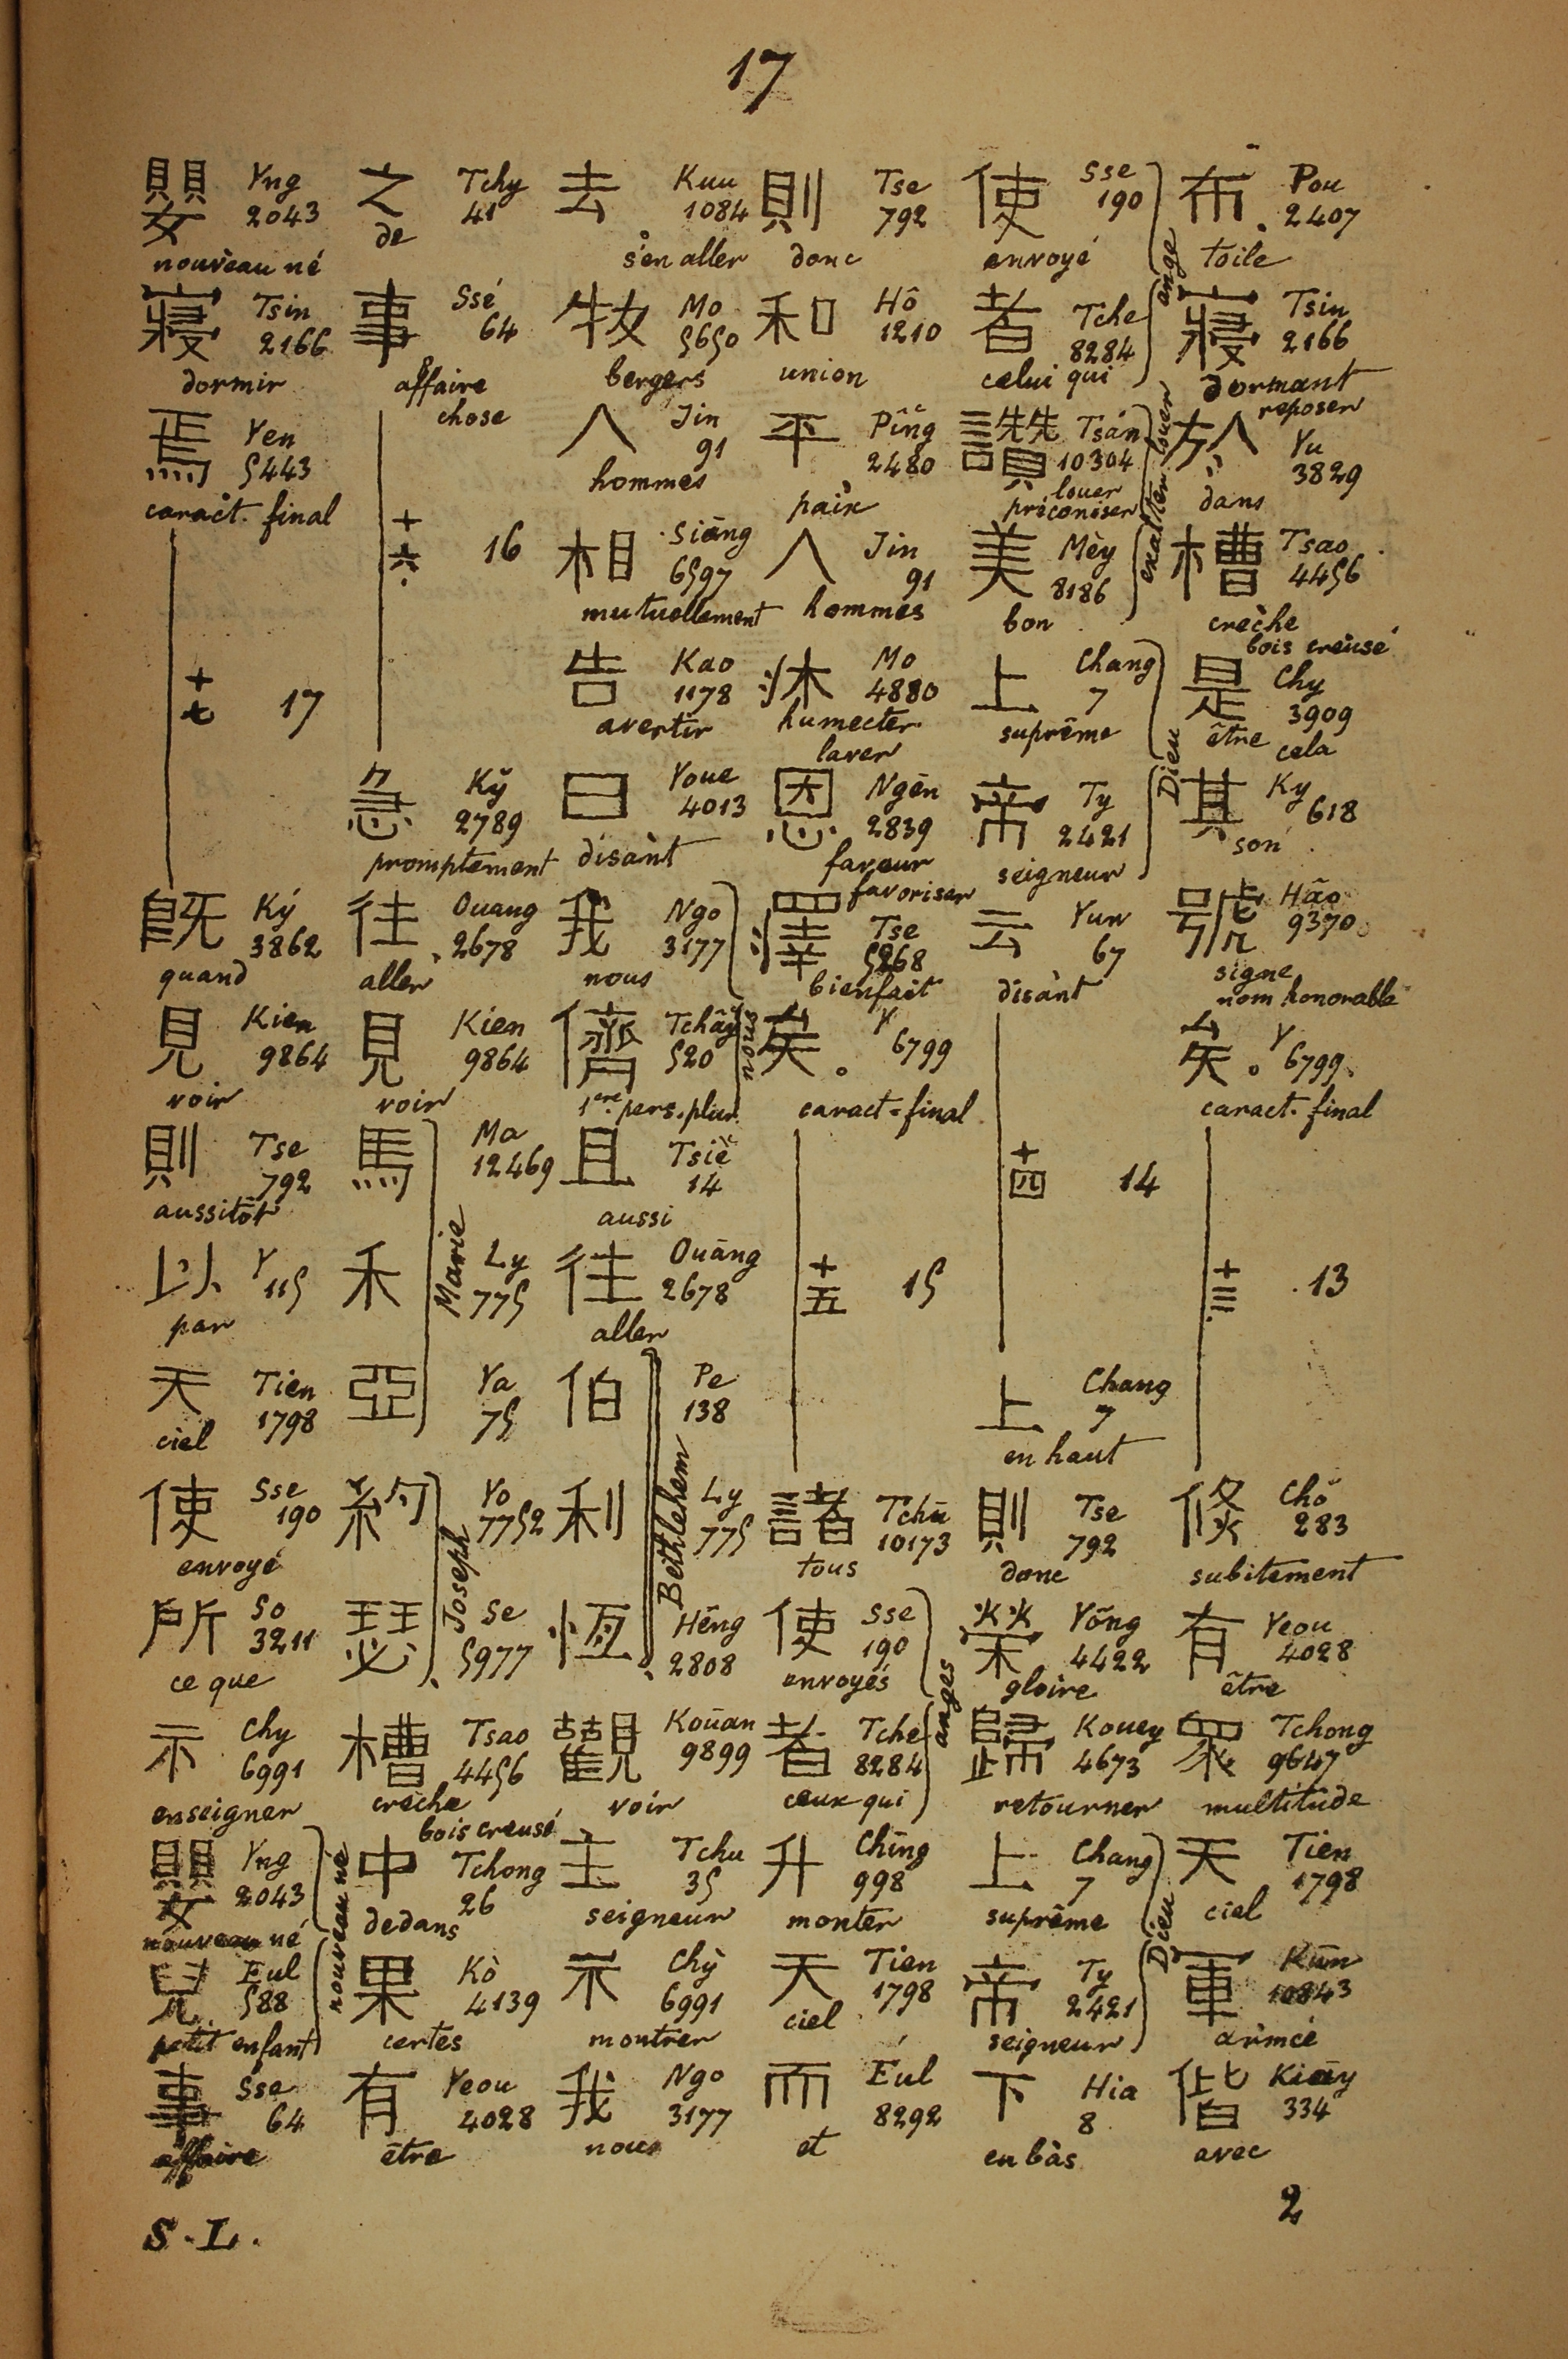 17
布. Pou 2407
toile
寢 Tsin 2166
dormant
reposer
於 Yu 3829
dans
槽 Tsao 4456
crèche
bois creusé
是 Chy 3909
être cela
其 Ky 618
son
號 Hāo 9370
signe
nom honorable
矣。 Y 6799
caract. final
十三 13
倏 Chŏ 283
subitement
有 Yeou 4028
être
眾 Tchong 9647
multitude
天 Tien 1798
ciel
軍 Kūn 10843
armée
偕 Kiāy 334
avec
使 Sse 190
envoyé
者 Tche 8284
celui qui
ange
讚 Tsán 10304
louer
préconiser
美 Mèy 8186
bon
exalter louer
上 Chang 7
suprême
帝 Ty 2421
seigneur
Dieu
云 Yun 67
disant
十四 14
上 Chang 7
en haut
則 Tse 792
donc
榮 Yōng 4422
gloire
歸 Kouey 4673
retourner
上 Chang 7
suprême
帝 Ty 2421
seigneur
Dieu
下 Hia 8
en bas
則 Tse 792
donc
和 Hô 1210
union
平 Pīng 2480
paix
人 Jin 91
hommes
沐 Mo 4880
humecter
laver
恩 Ngēn 2839
faveur
favoriser
澤 Tse 5268
bienfait
矣。 Y 6799
caract. final
十五 15
諸 Tchū 10173
tous
使 Sse 190
envoyés
者 Tche 8284
ceux qui
anges
升 Chīng 998
monter
天 Tien 1798
ciel
而 Eúl 8292
et
去 Kuu 1084
s'en aller
牧 Mo 5650
bergers
人 Jin 91
hommes
相 Siāng 6597
mutuellement
告 Kao 1178
avertir
曰 Youe 4013
disant
我 Ngo 3177
nous
儕 Tchāy 520
1ère pers. plur.
nous
且 Tsiè 14
aussi
往 Ouāng 2678
aller
伯 Pe 138
利 Ly 775
恆 Hēng 2808
Bethlehem
觀 Koūan 9899
voir
主 Tchu 35
seigneur
示 Chỳ 6991
montrer
我 Ngo 3177
nous
之 Tchy 41
de
事 Ssé 64
affaire
chose
十六 16
急 Kў 2789
promptement
往 Ouang 2678
aller
見 Kien 9864
voir
馬 Ma 12469
禾 Ly 775
亞 Ya 75
Marie
約 Yo 7752
瑟 Se 5977
Joseph
槽 Tsao 4456
crèche
bois creusé
中 Tchong 26
dedans
果 Kò 4139
certes
有 Yeou 4028
être
嬰 Yng 2043
nouveau né
寢 Tsin 2166
dormir
焉 Yen 5443
caract. final
十七 17
既 Ký 3862
quand
見 Kien 9864
voir
則 Tse 792
aussitôt
以 Y 115
par
天 Tien 1798
ciel
使 Sse 190
envoyé
所 So 3211
ce que
示 Chy 6991
enseigner
嬰 Yng 2043
nouveau né
兒 Eul 588
petit enfant
nouveau né
事 Sse 64
affaire
S. L.
2